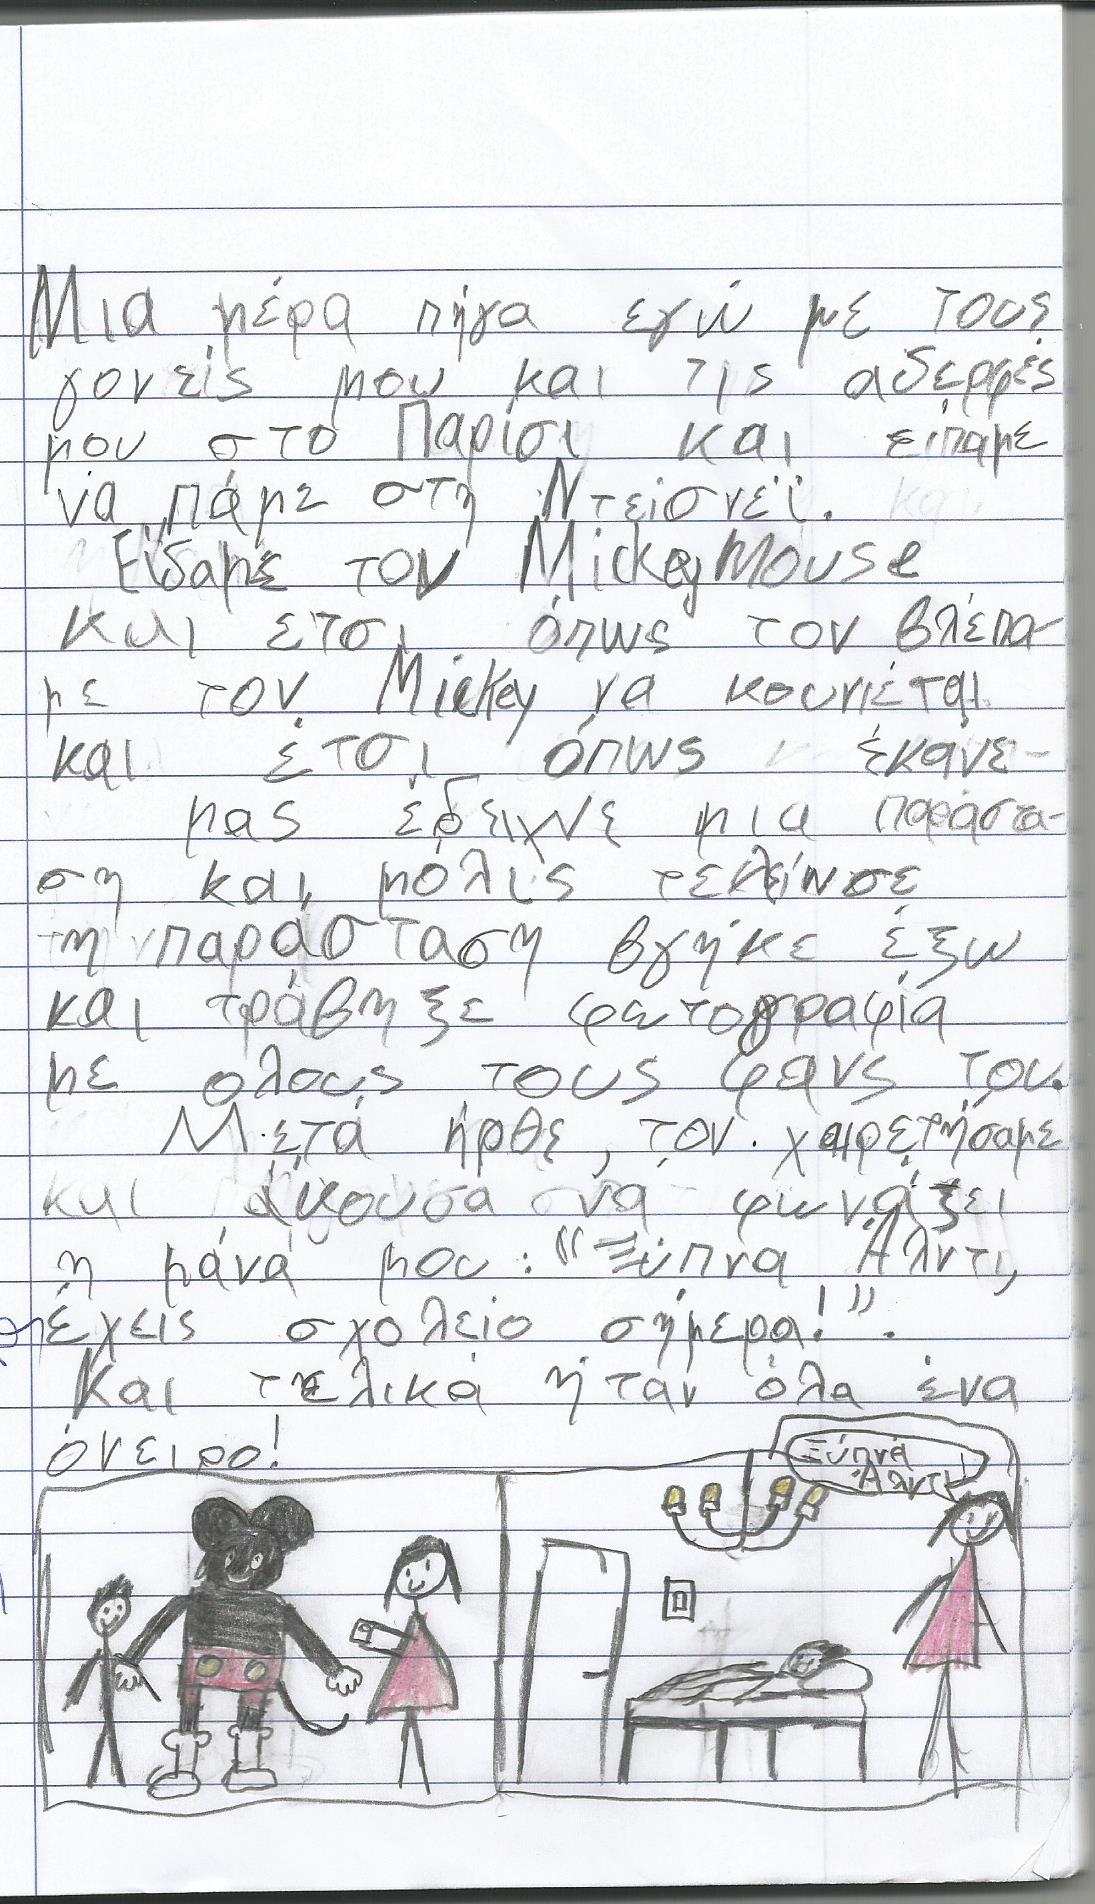 Μια μέρα πήγα εγώ με τους
γονείς μου και τις αδερφές
μου στο Παρίσι και είπαμε
να πάμε στη Ντείσνεϊ.
Είδαμε τον Mickey Mouse
και έτσι όπως τον βλέπα-
με τον Mickey να κουνιέται
και έτσι όπως έκανε-
μας έδειχνε μια παράστα-
ση και μόλις τελείωσε
τη παράσταση βγήκε έξω
και τράβηξε φωτογραφία
με ολους τους φανς του.
Μετά ήρθε, τον χαιρετήσαμε
και άκουσα να φωνάξει
η μάνα μου: "Ξύπνα Άλντι,
έχεις σχολείο σήμερα!".
Και τελικά ήταν όλα ένα
όνειρο!
Ξύπνα
Άλντι